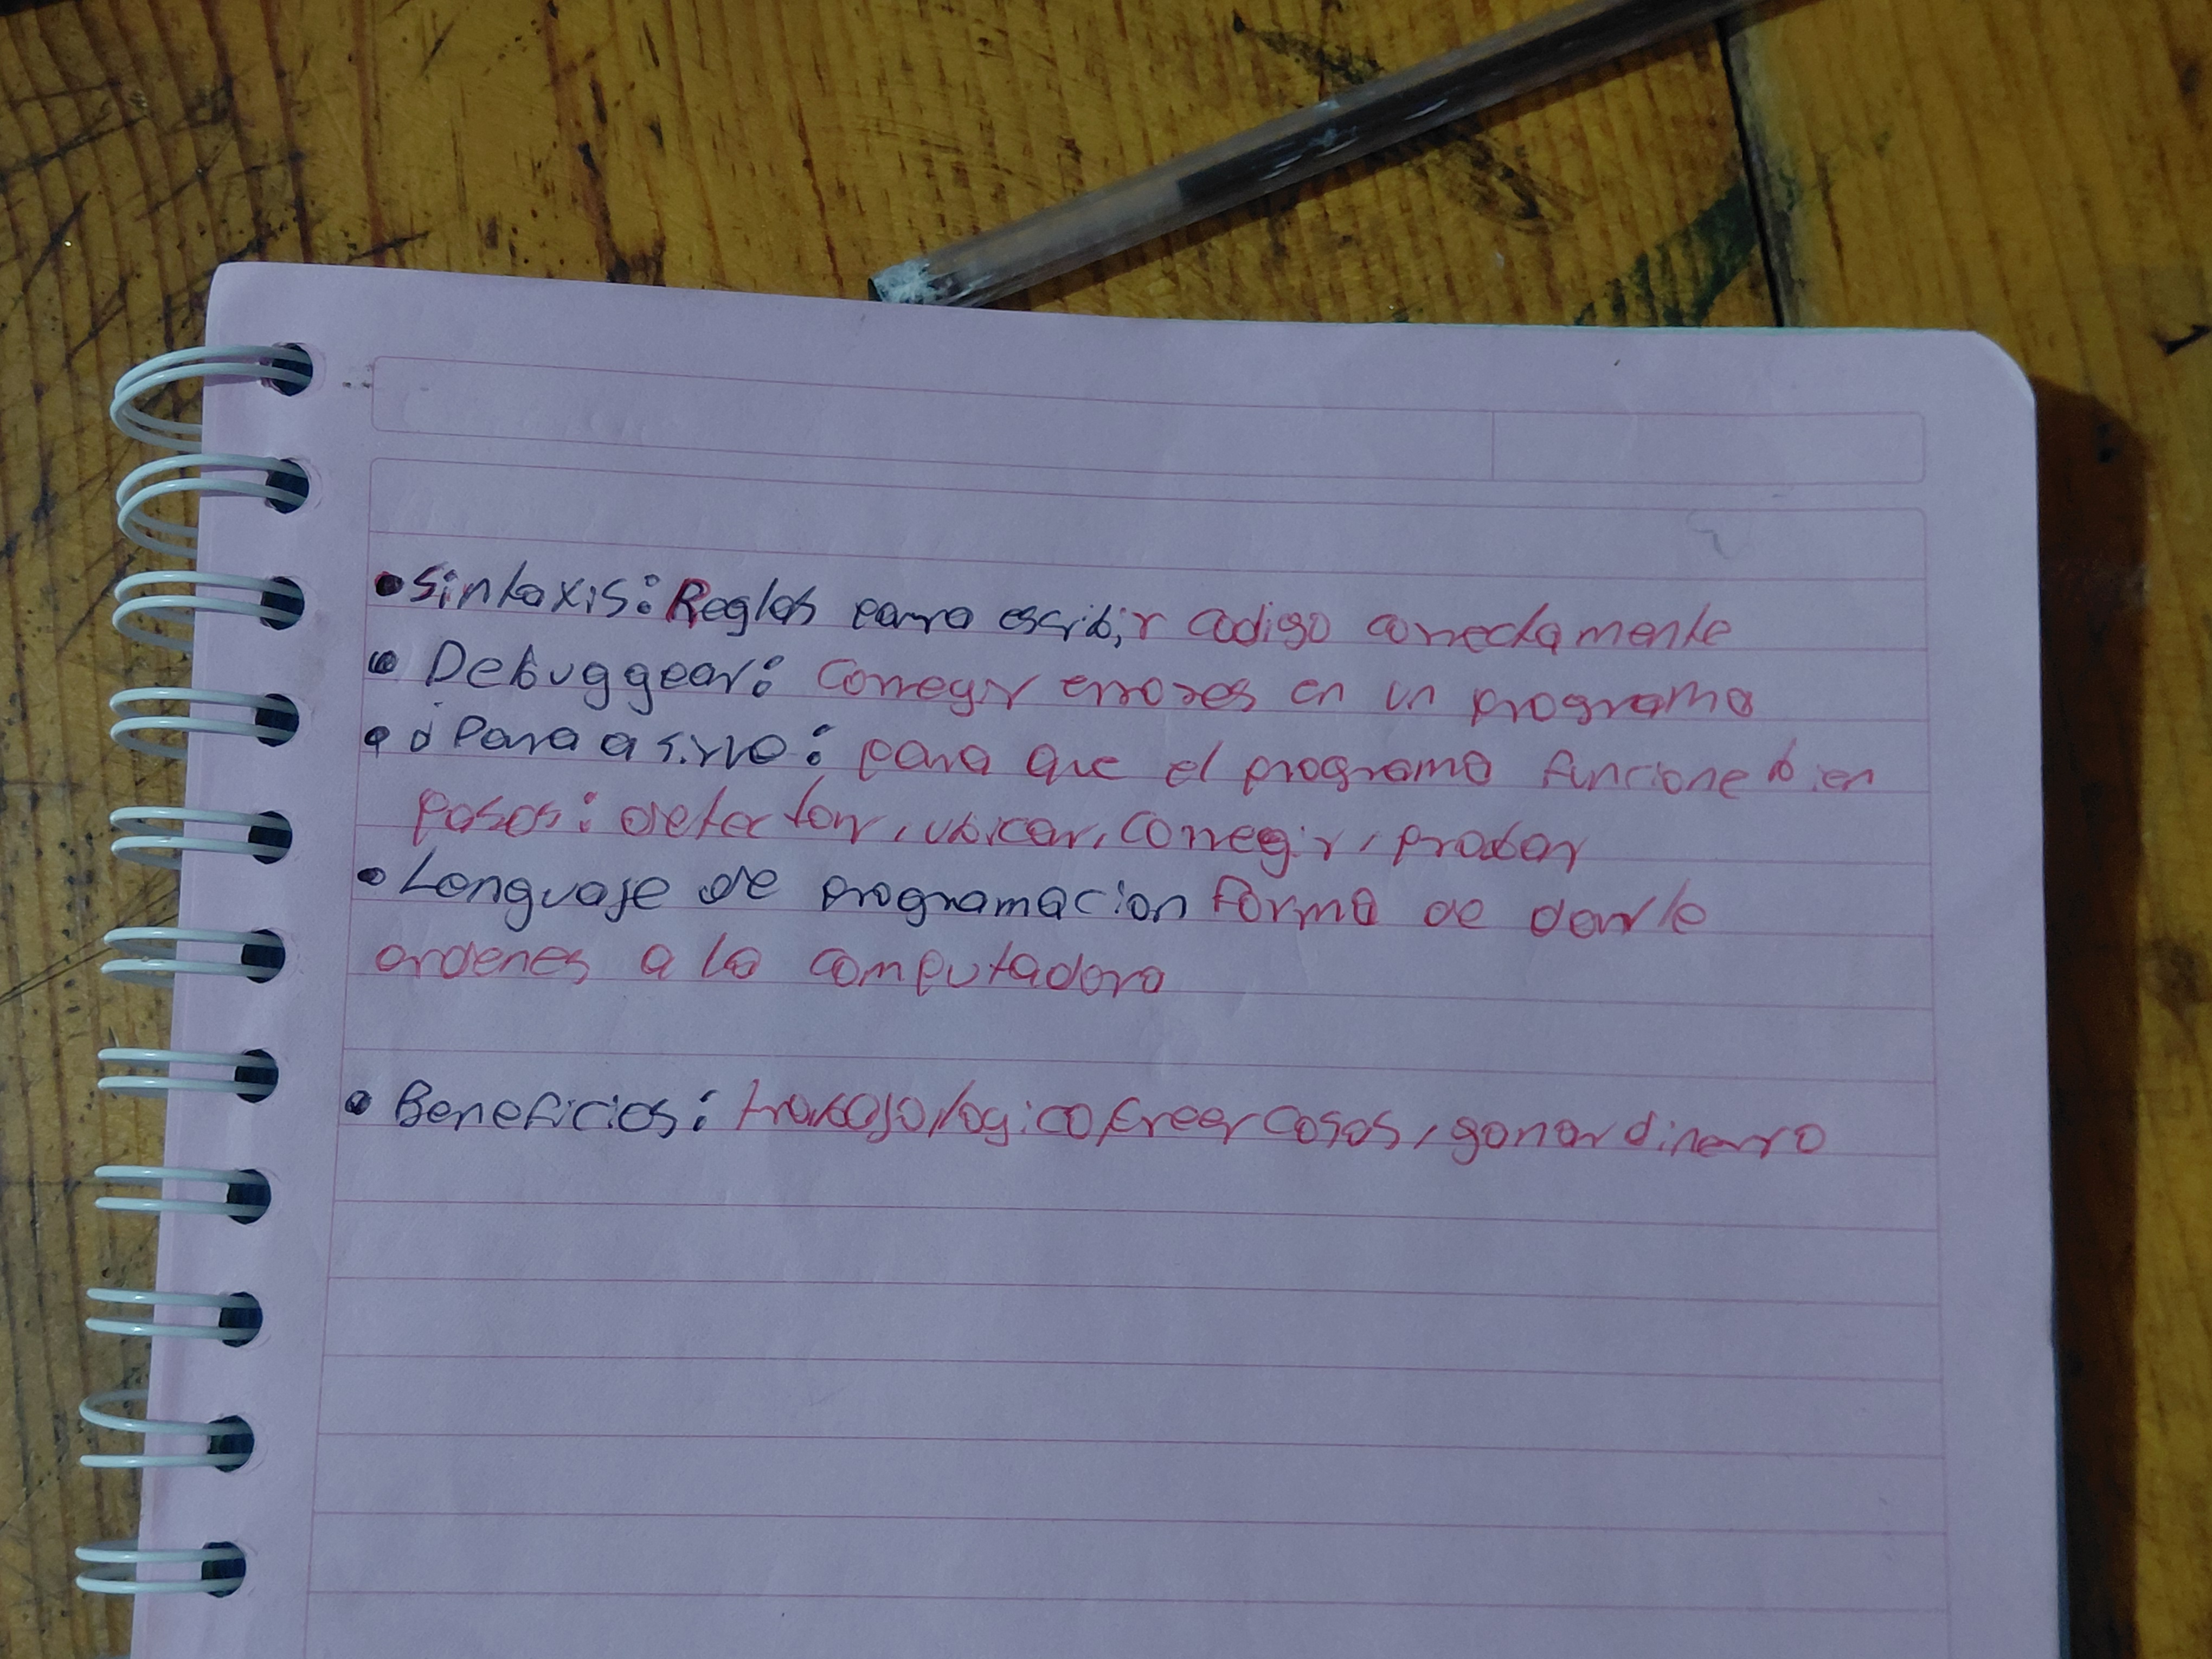 • Sintaxis: Reglas para escribir codigo correctamente
• Debuggear: Corregir errores en un programa
• ¿Para a sirve: para que el programa funcione bien
Pasos: detectar, ubicar, corregir, probar
• Lenguaje de programacion forma de darle
ordenes a la computadora
• Beneficios: trabajo logico, creer cosas, ganar dinerro